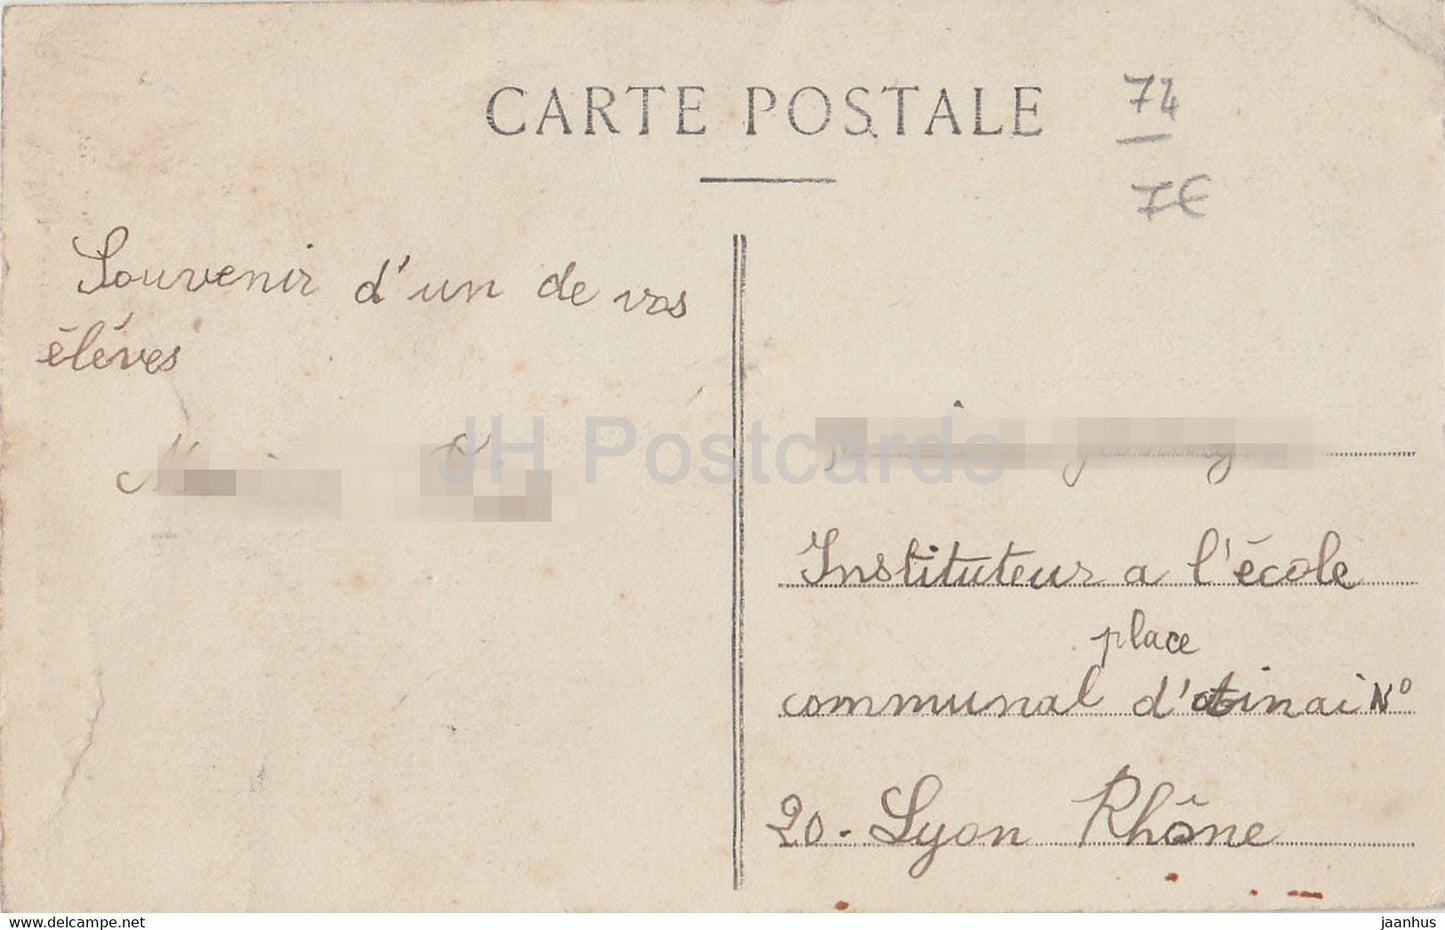 CARTE POSTALE
74
7€
Souvenir d'un de vos
élèves
JH Postcards
Instituteur a l'école
place
communal d'atinai N°
20. Lyon Rhône
www.delcampe.net
jaanhus